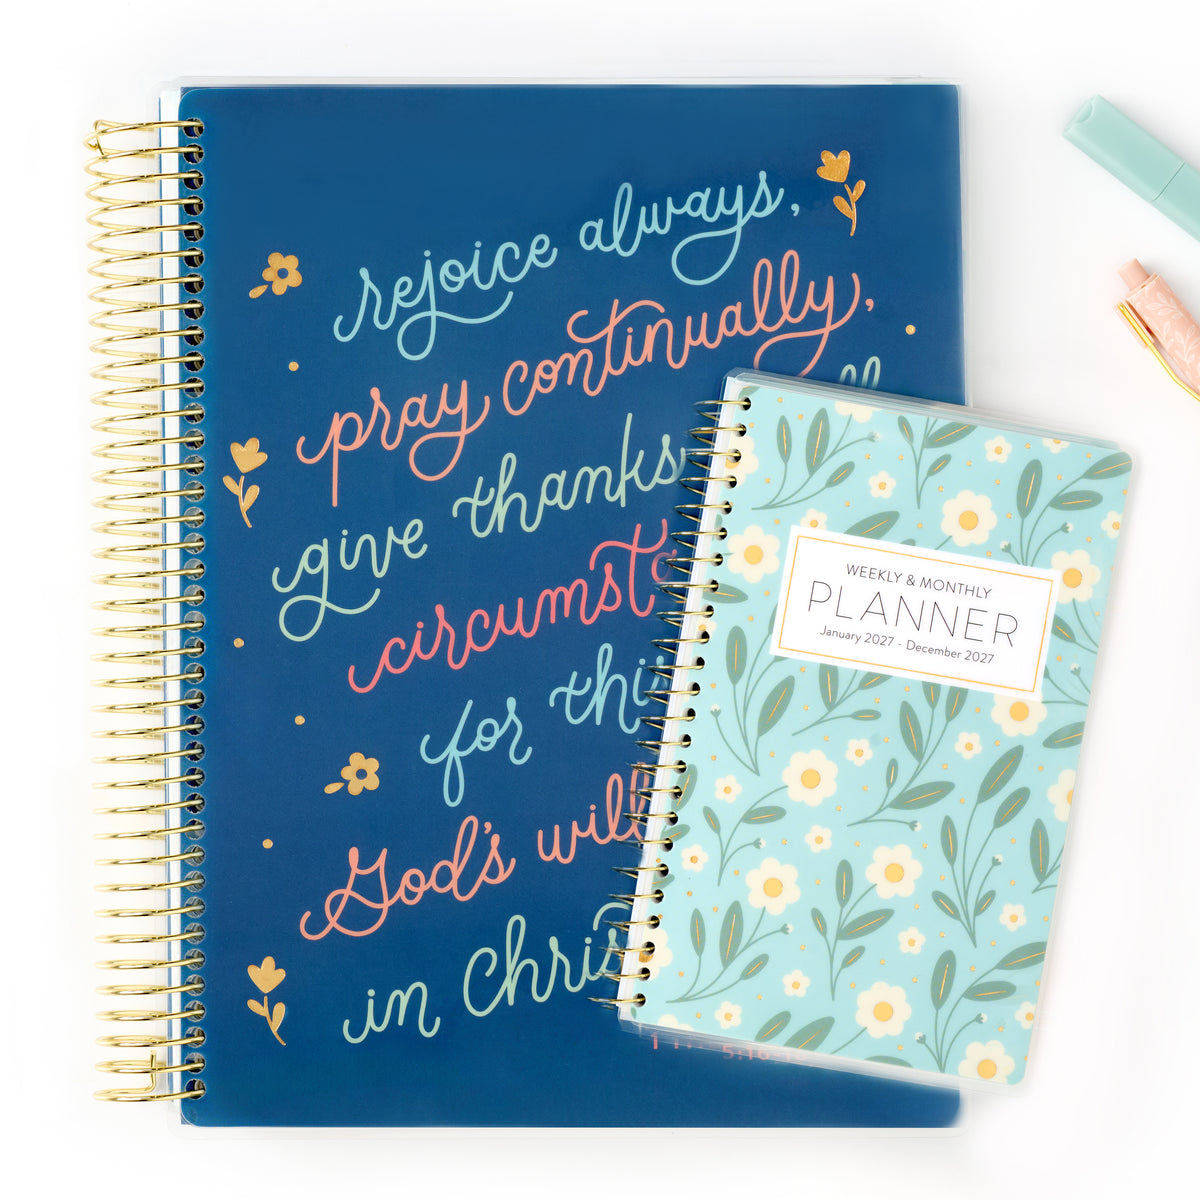 rejoice always,
pray continually,
give thanks
for
God's will
in
WEEKLY & MONTHLY
PLANNER
January 2027 - December 2027